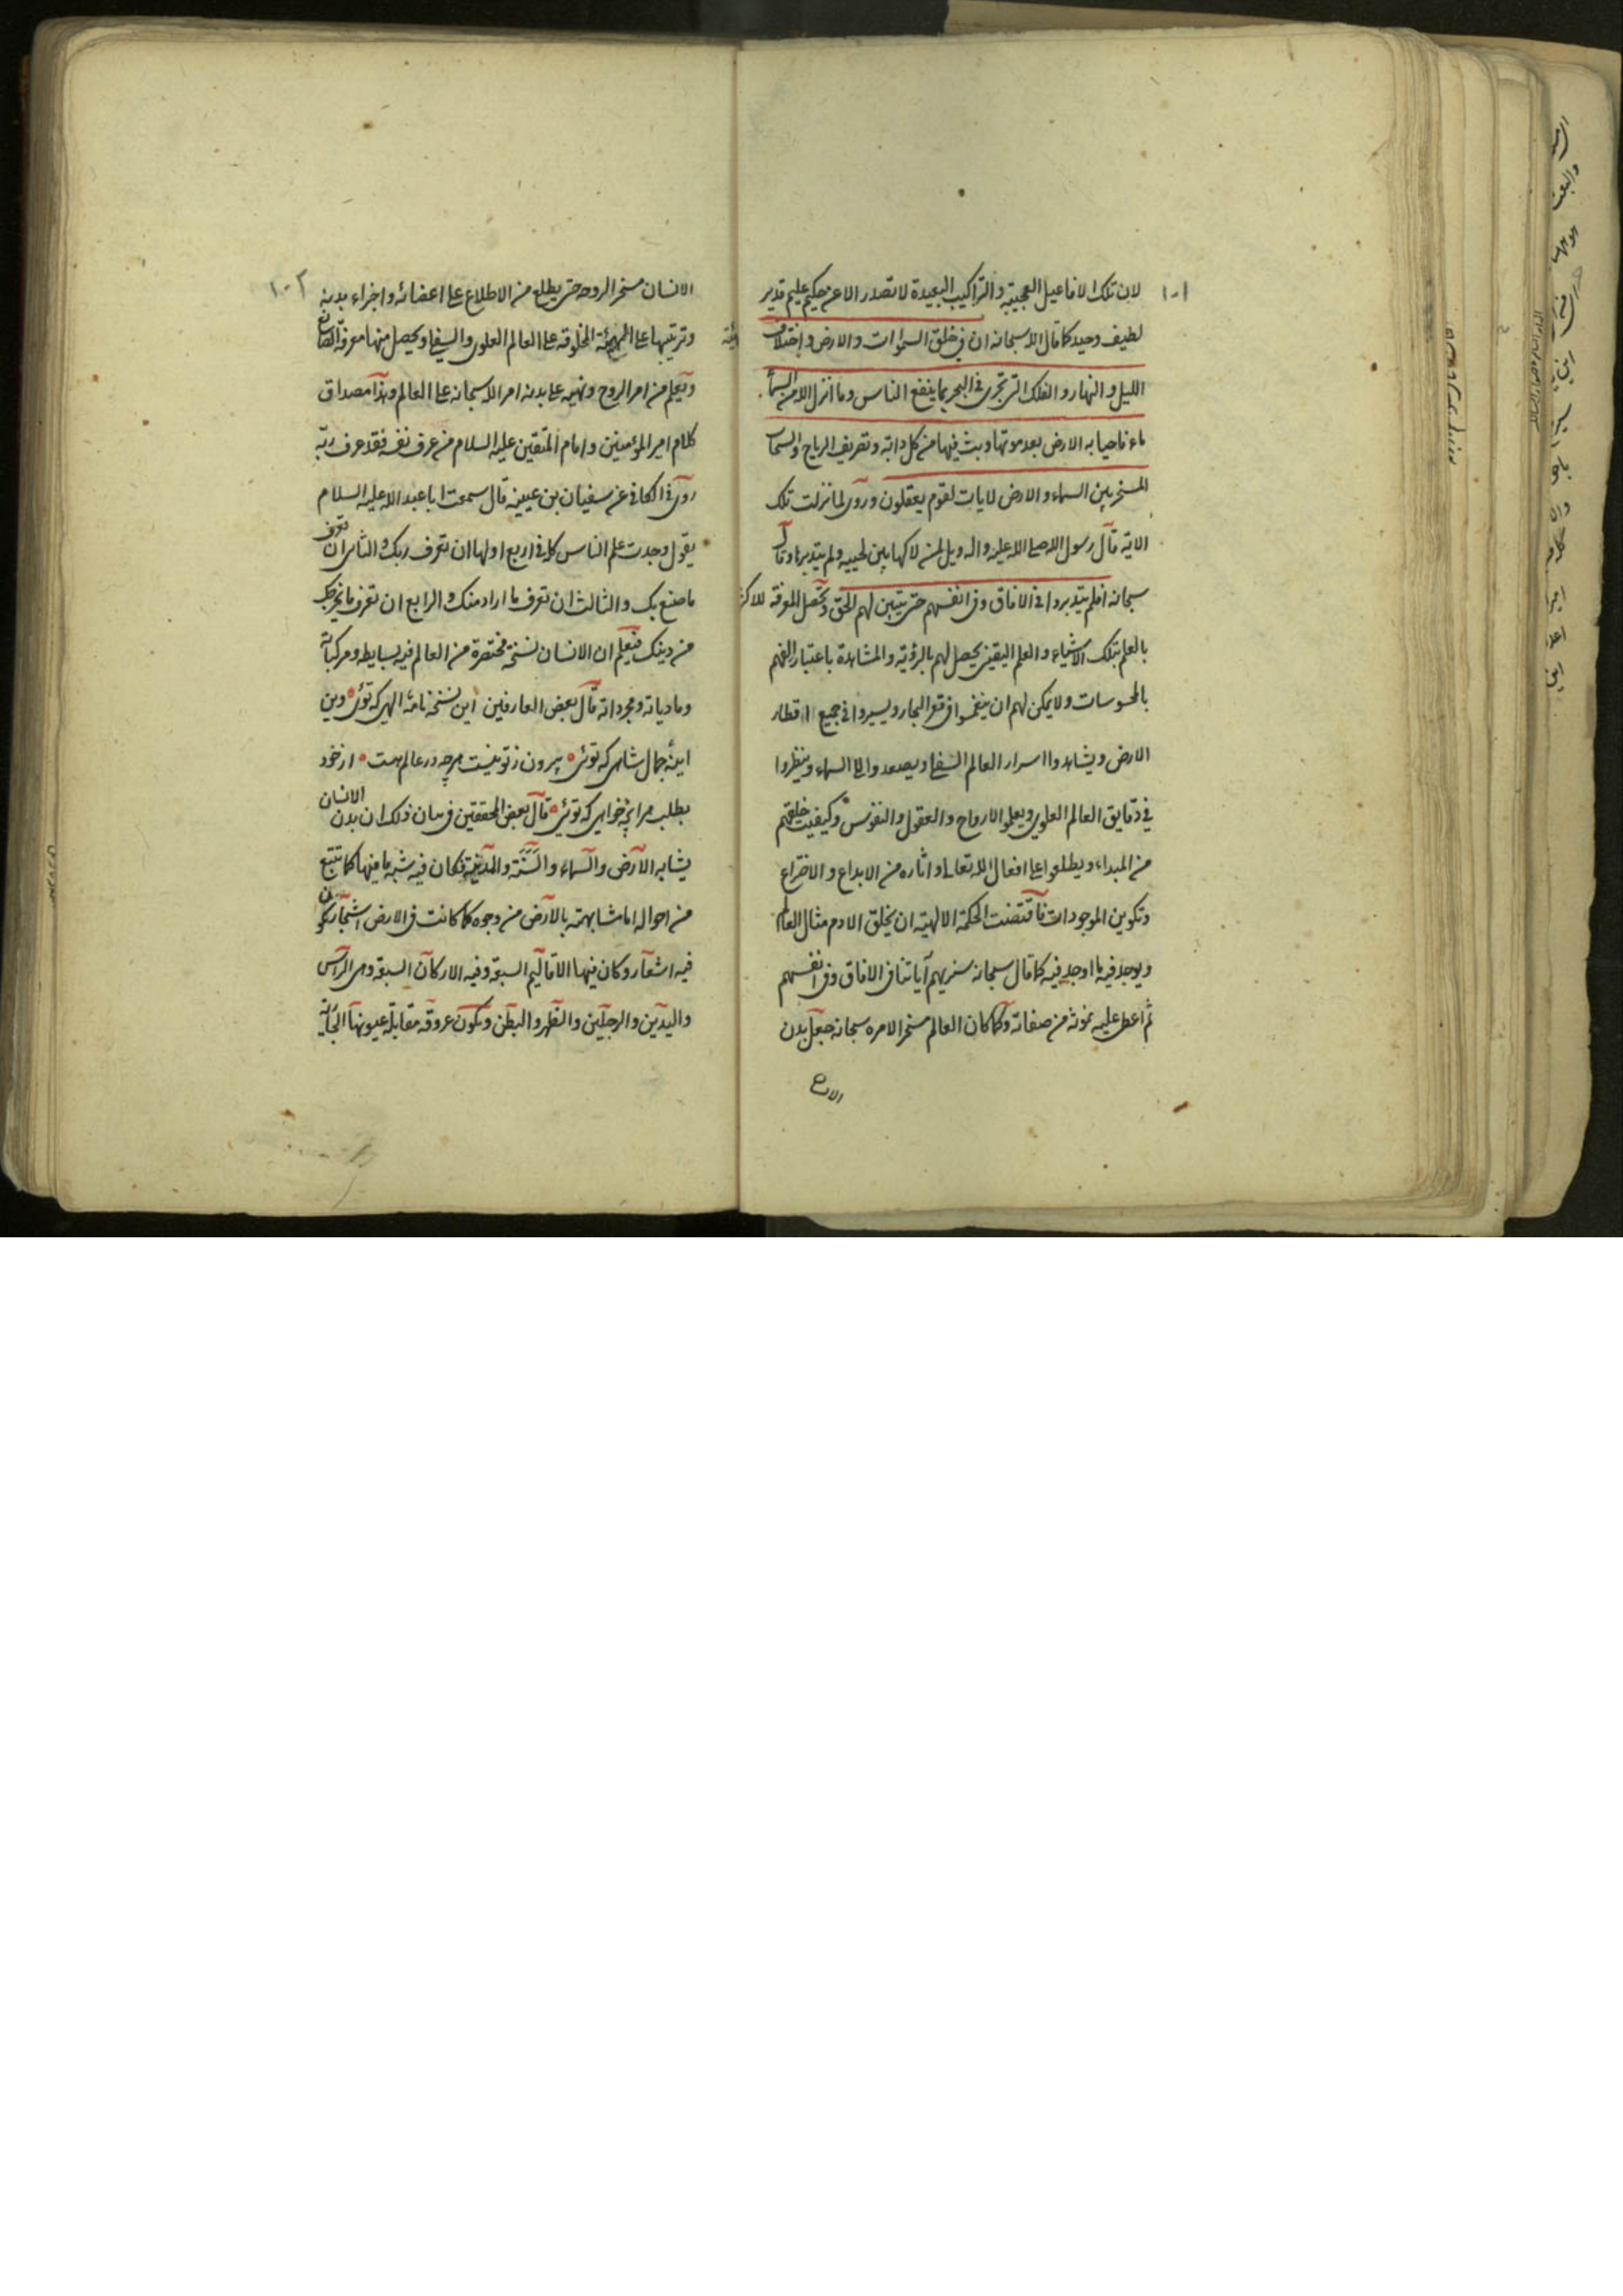 ١٠١
لان تلك الافاعيل العجيبة والتراكيب البعيدة لا تصدر الا عن حكيم عليم قدير
لطيف وحيد كما قال الله سبحانه ان فى خلق السموات والارض واختلاف
الليل والنهار والفلك التى تجرى فى البحر بما ينفع الناس وما انزل الله من السماء
ماء فاحيا به الارض بعد موتها وبث فيها من كل دابة وتصريف الرياح والسحاب
المسخر بين السماء والارض لايات لقوم يعقلون وروى لما نزلت تلك
الاية قال رسول الله صلى الله عليه واله ويل لمن لاكها بين لحييه ولم يتدبرها وقال
سبحانه افلم يتدبروا فى الافاق وفى انفسهم حتى يتبين لهم الحق وتحصل المعرفة للاكثر
بالعلم بتلك الاشياء والعلم اليقينى يحصل لهم بالرؤية والمشاهدة باعتبار الفهم
بالمحسوسات ولا يمكن لهم ان ينغمسوا فى قعر البحار ويسيروا فى جميع اقطار
الارض ويشاهدوا اسرار العالم السفلى ويصعدوا الى السماء وينظروا
فى دقايق العالم العلوى ويعلموا الارواح والعقول والنفوس وكيفيت خلقهم
من المبداء ويطلعوا على افعال الله تعالى واثاره من الابداع والاختراع
وتكوين الموجودات فاقتضت الحكمة الالهية ان يخلق الادم مثال العالم
ويوجد فيه ما اوجد فيه كما قال سبحانه سنريهم آياتنا فى الافاق وفى انفسهم
ثم اعطى عليه نموذج من صفاته وكما كان العالم مسخر الامره سبحانه جعل بدن
١٠٢
الانسان مسخر الروحه حتى يطلع من الاطلاع على اعضائه واجزاء بدنه
وترتيبها على الهيئة المخلوقة على العالم العلوى والسفلى ويحصل منها معرفة الصانع
ويعلم من امر الروح ونهيه على بدنه امر الله سبحانه على العالم وهذا مصداق
كلام امير المؤمنين وامام المتقين عليه السلام من عرف نفسه فقد عرف ربه
روى فى الكافى عن سفيان بن عيينه قال سمعت ابا عبد الله عليه السلام
يقول وجدت علم الناس كله فى اربع اولها ان تعرف ربك والثانى ان تعرف
ما صنع بك والثالث ان تعرف ما اراد منك والرابع ان تعرف ما يخرجك
من دينك فيعلم ان الانسان نسخة مختصرة من العالم فيه بسايطه ومركباته
ومادياته ومجرداته قال بعض العارفين اين نسخه نامهٔ الهى كه توئى وين
اينهٔ جمال شاهى كه توئى بيرون ز تو نيست هرچه در عالم هست از خود
بطلب هر انچه خواهى كه توئى قال بعض المحققين فى بيان ذلك ان بدن الانسان
يشابه الارض والسماء والسنة والمدينة فكان فيه شبه ما فيها كما تتبع
من احواله اما مشابهته بالارض من وجوه كما كانت فى الارض اشجار يكون
فيه اشعار وكان فيها الاقاليم السبعة وفيه الاركان السبعة وهى الراس
واليدين والرجلين والظهر والبطن ويكون عروقه مقابلة عيونها الجارية